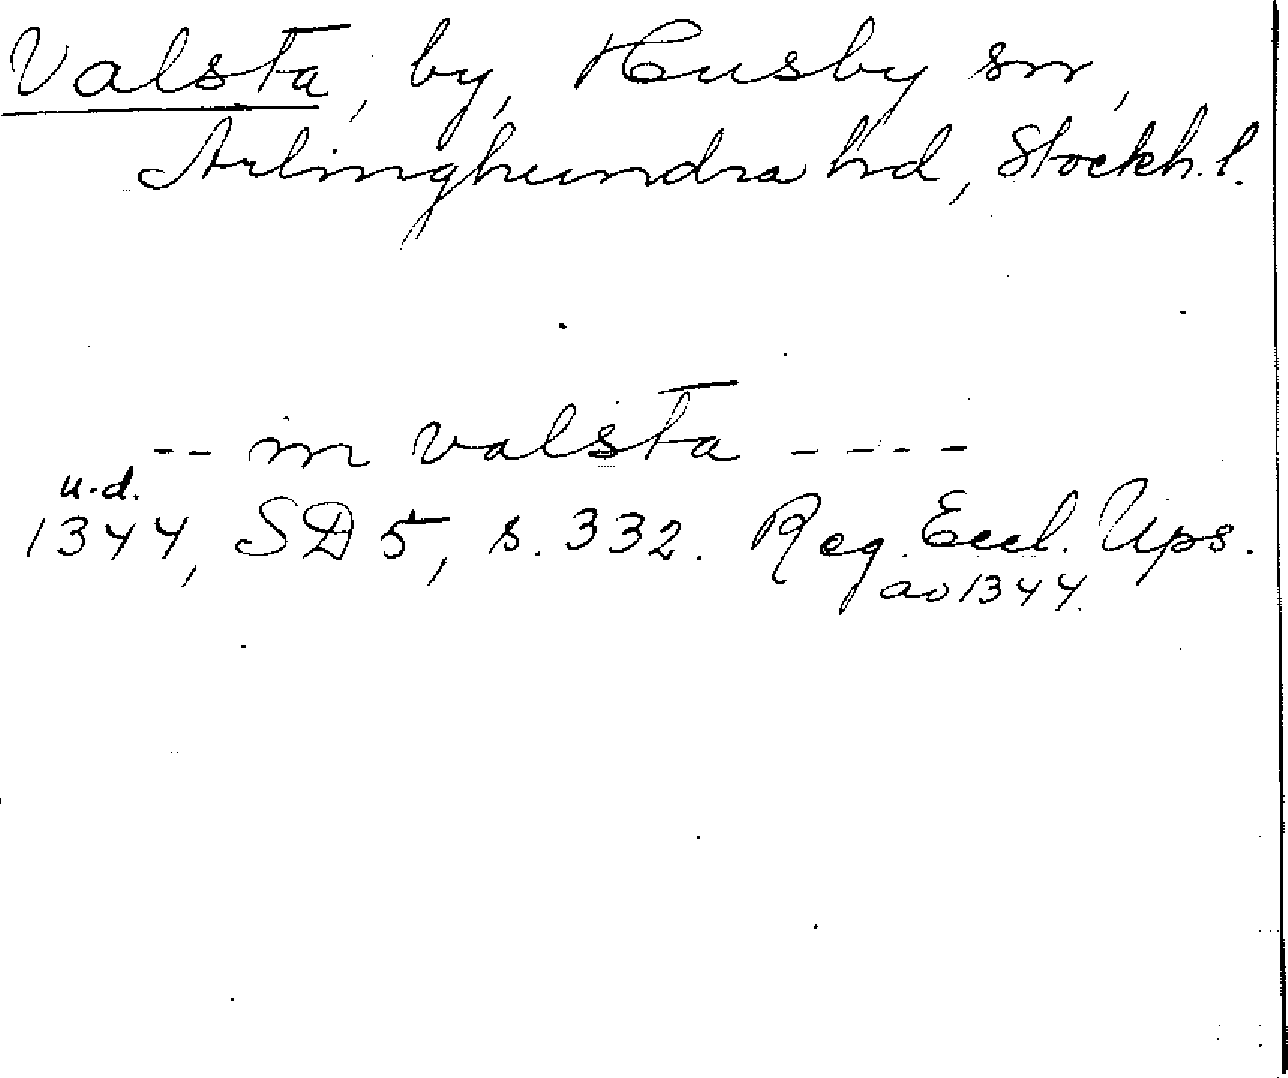 Valsta, by, Husby sn,
Arlinghundra hd, Stockh. l.
-- in valsta ----
u.d.
1344, SD 5, s. 332. Reg. Eccl. Ups.
ao 1344.